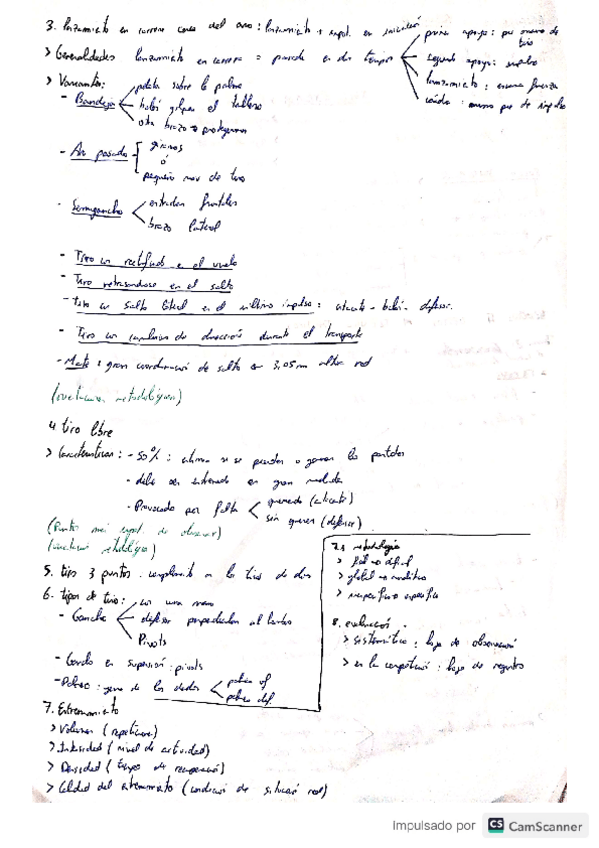 3. lanzamiento en carrera cerca del aro: lanzamiento + impul. en iniciación
primer apoyo: pie mano de tiro
> Generalidades lanzamiento en carrera = parada en dos tiempos
segundo apoyo: impulso
lanzamiento: escasa fuerza
caída: mismo pie de impulso
> Variantes:
- Bandeja
pelota sobre la palma
balón golpea el tablero
otro brazo → protegernos
- Aro pasado
giramos
ó
pequeño mov de tiro
- Semigancho
extender
brazo lateral
- Tiro con rectificado en el vuelo
- Tiro retrasandose en el salto
- tiro con salto lateral en el último impulso: atacante - balón - defensor.
- Tiro con cambios de dirección durante el transporte
- Mate: gran coordinación de salto 3,05m altura red
(metodológicos)
4 tiro libre
> Características: - 50%: se pierden o ganan los partidos
- debe ser entrenado en gran medida
- Provocado por falta
queriendo (atacante)
sin querer (defensor)
(Puntos observar)
5. tiros 3 puntos. complemento a los tiros de dos
6. tipos de tiro:
- Gancho
con una mano
defensor perpendicular al
Pivots
- Gancho en suspensión: pivots
- Palmeo: yema de los dedos
palmeo of
palmeo def.
7. Entrenamiento
> Volumen (repeticiones)
> Intensidad (nivel de actividad)
> Densidad (tiempo de recuperación)
> Calidad del entrenamiento (de situación real)
7.1 metodología
> fácil → difícil
> global → analítico
> inespecífico específico
8. evaluación.
> sistemática: hoja de observación
> en la competición: hoja de registro
Impulsado por CS CamScanner